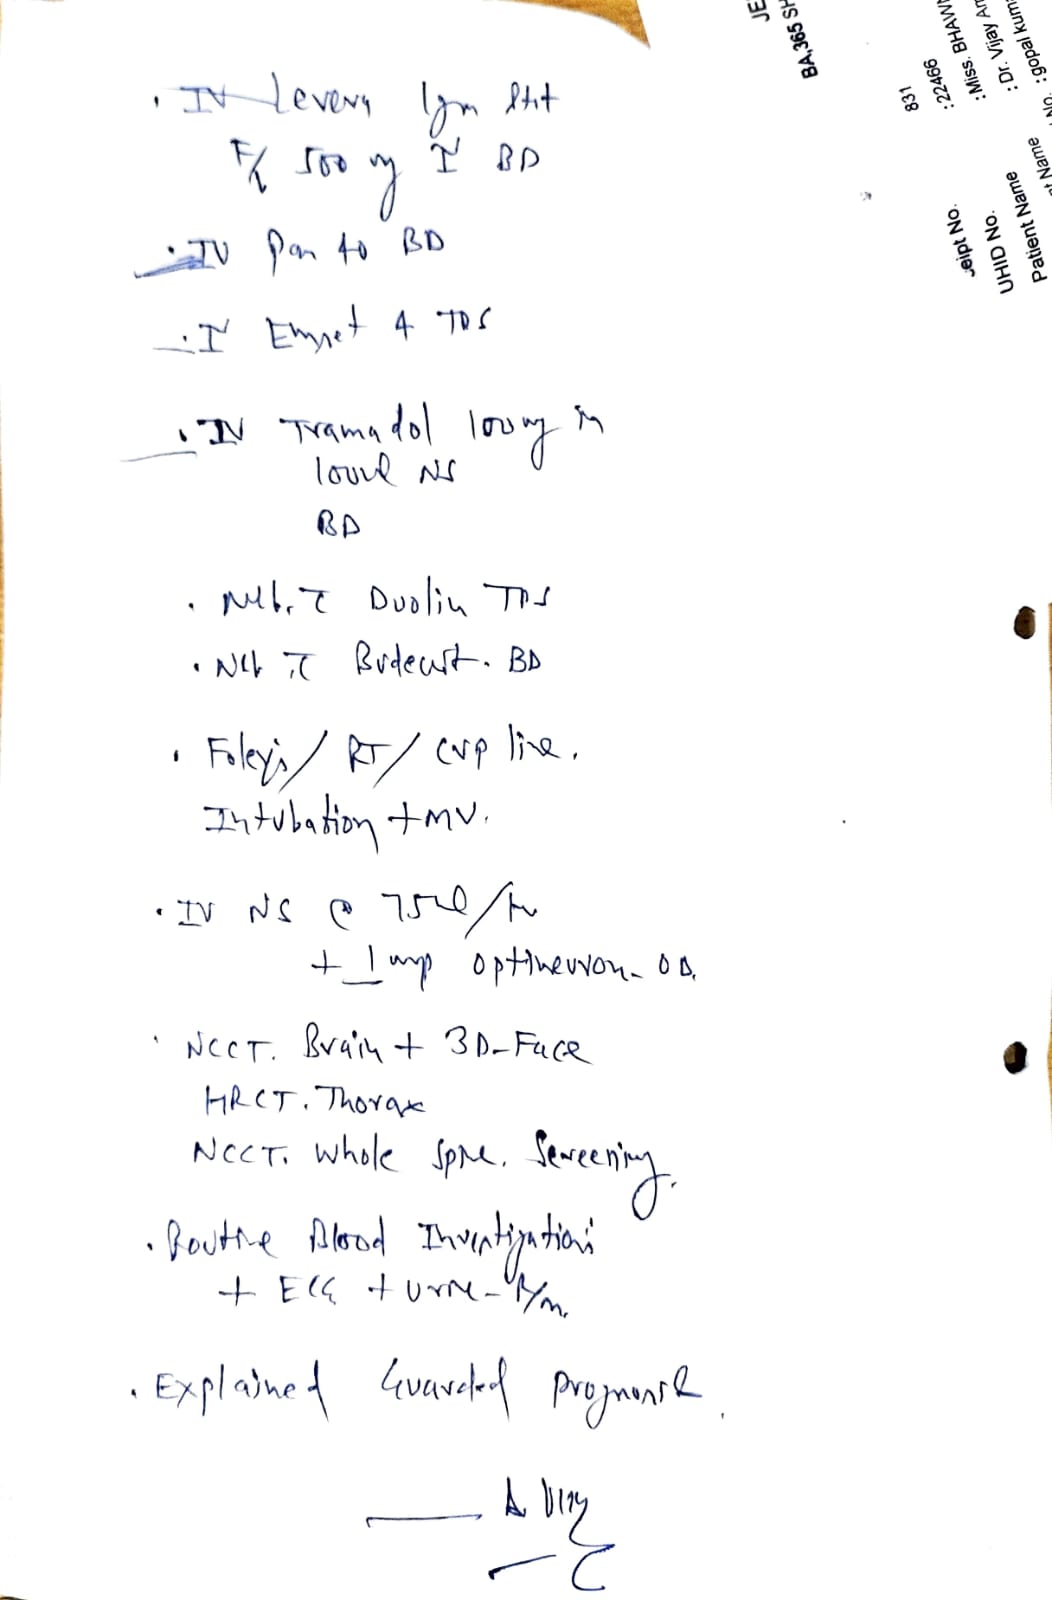 . IV Levera 1gm Stat
F/b 500 mg IV BD
. IV Pan 40 BD
. IV Emset 4 TDS
. IV Tramadol 100mg in
100ml NS
BD
. Neb. c̄ Duolin TDS
. Neb c̄ Budecort. BD
. Foley's / RT / CVP line.
Intubation + MV.
. IV NS @ 75ml/hr
+ 1 amp optineuron - OD.
. NCCT. Brain + 3D-Face
HRCT. Thorax
NCCT. Whole Spine. Screening.
. Routine Blood Investigations
+ ECG + Urine - R/m.
. Explained Guarded prognosis.
JE
BA,365 SH
831
: 22466
: Miss. BHAWN
: Dr. Vijay Ar
: gopal kum
eipt No.
UHID No.
Patient Name
Name
No.